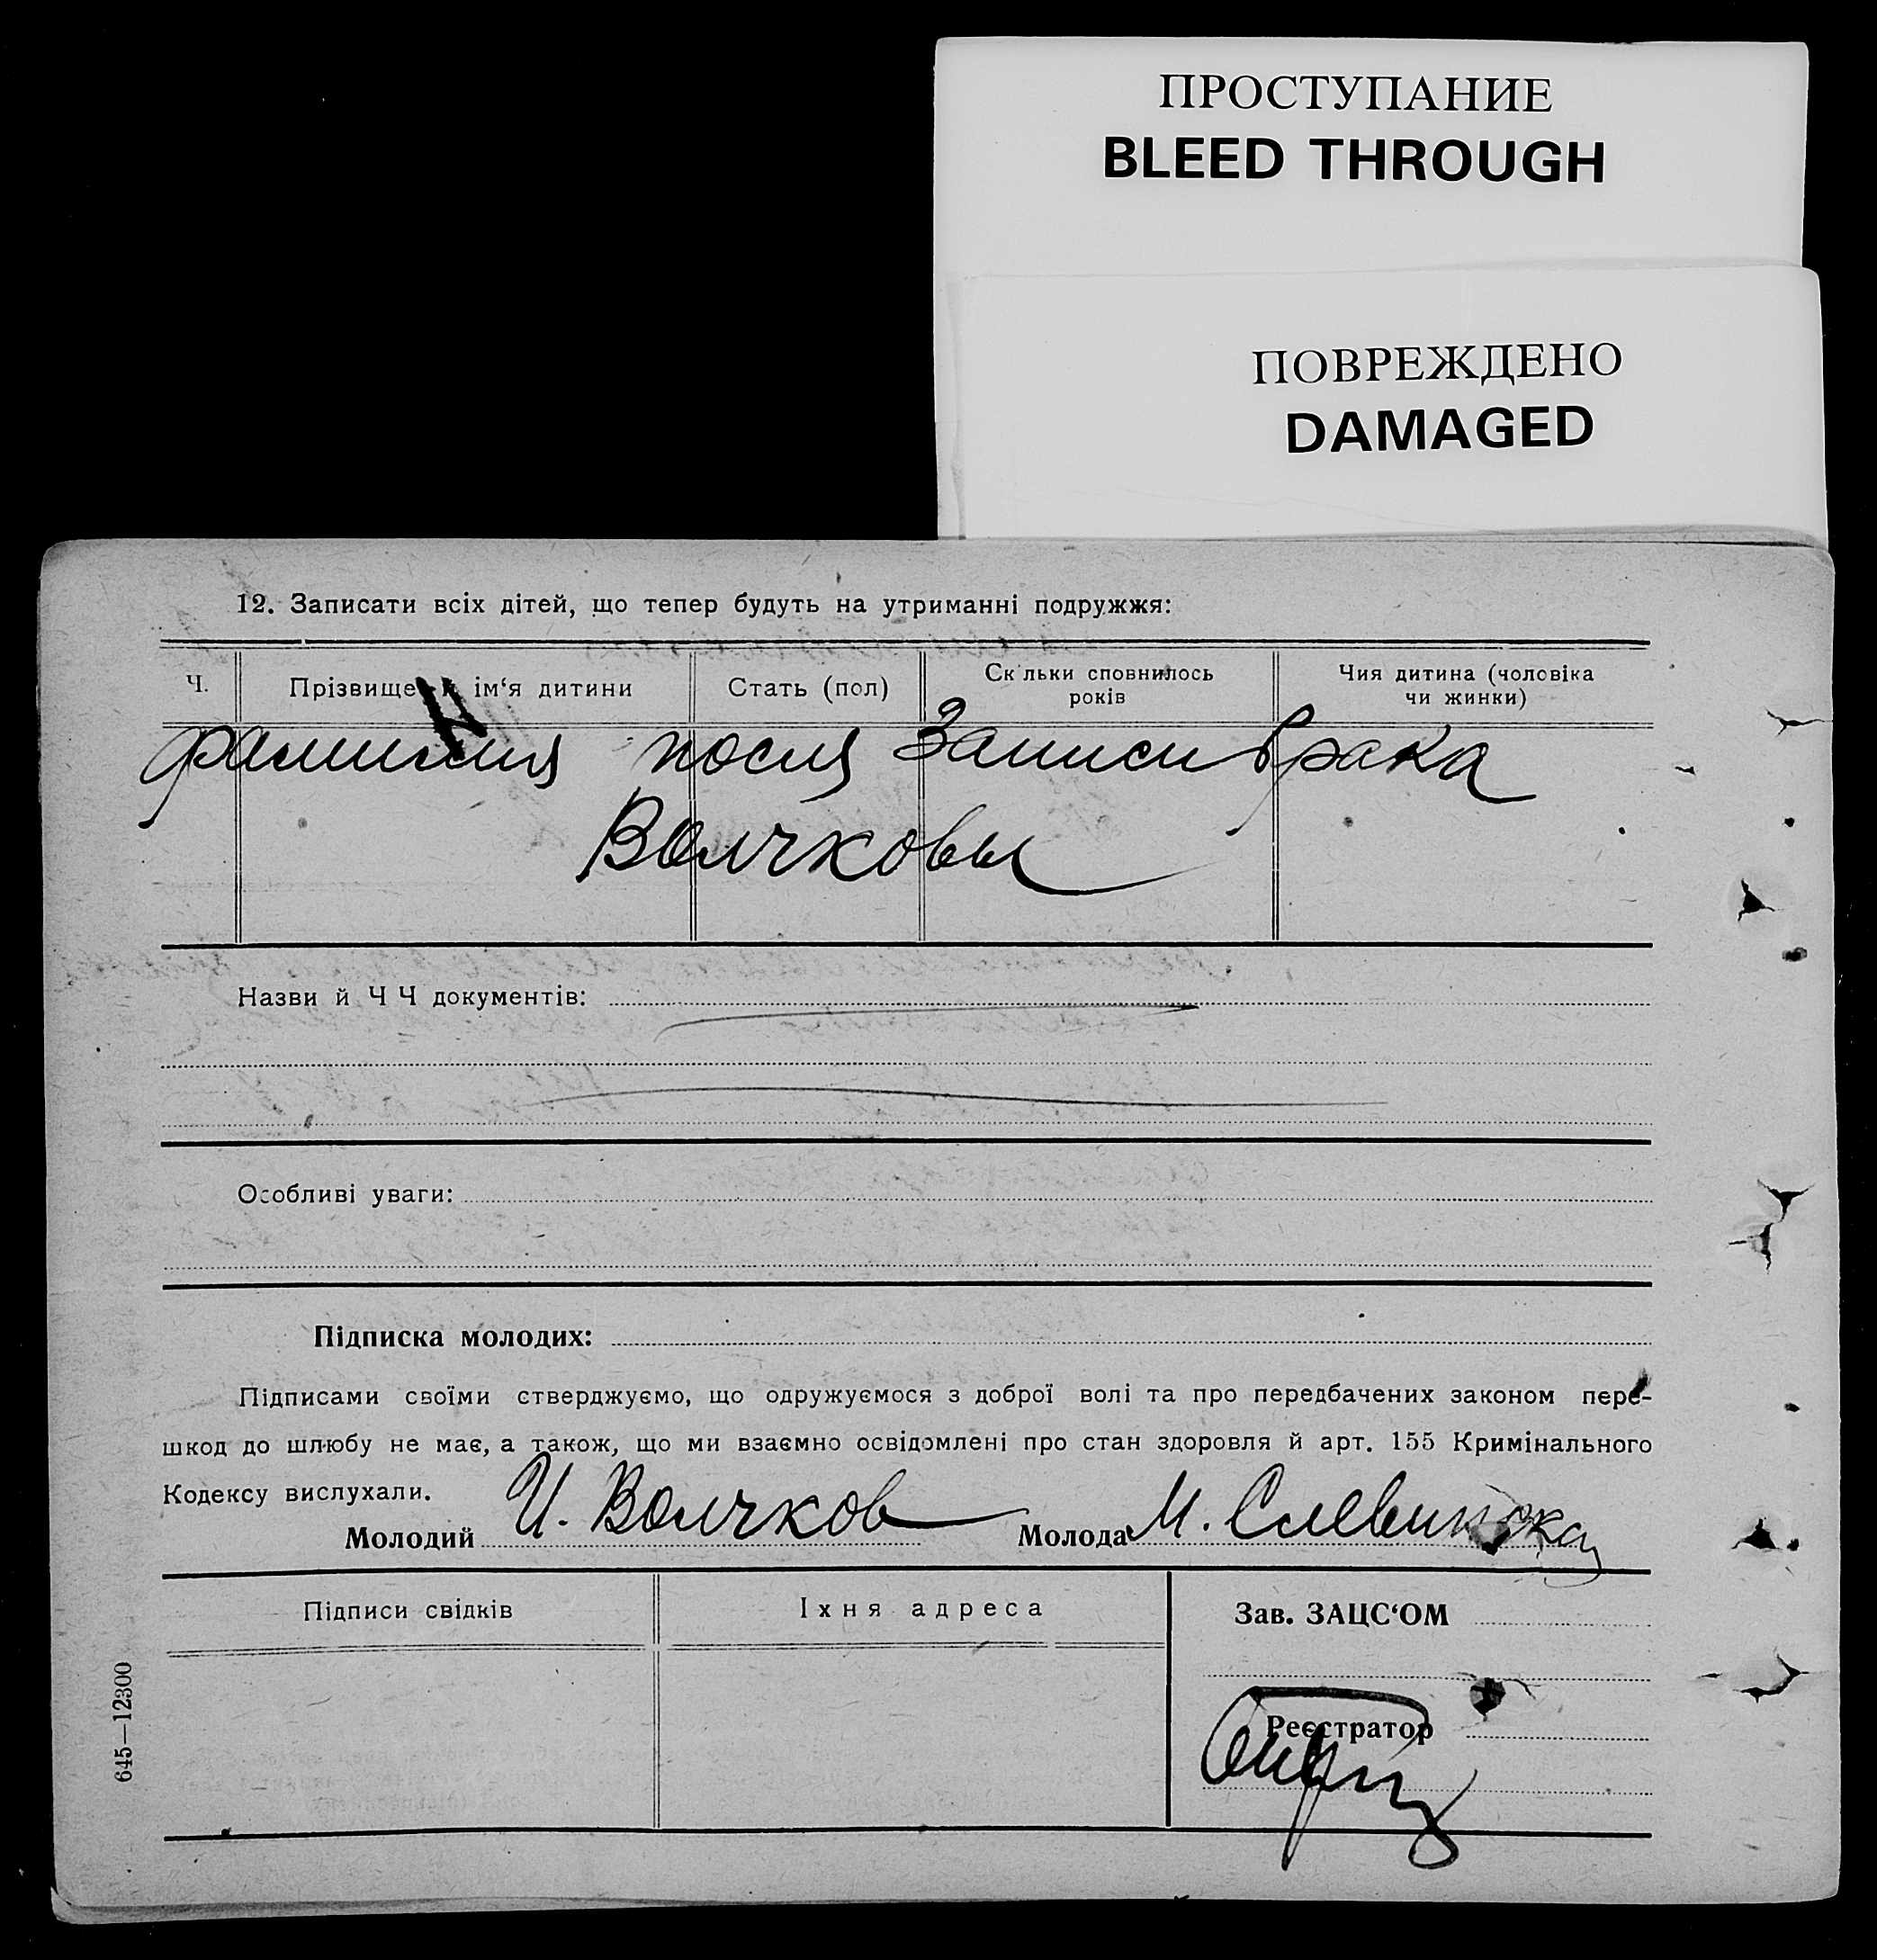 ПРОСТУПАНИЕ
BLEED THROUGH
ПОВРЕЖДЕНО
DAMAGED
12. Записати всіх дітей, що тепер будуть на утриманні подружжя:
Ч.
Прізвище й ім‘я дитини
Стать (пол)
Ск льки сповнилось
років
Чия дитина (чоловіка
чи жинки)
после Записи брака
Волчковы
Назви й Ч Ч документів:
Особливі уваги:
Підписка молодих:
Підписами своїми стверджуємо, що одружуємося з доброї волі та про передбачених законом пере-
шкод до шлюбу не має, а також, що ми взаємно освідомлені про стан здоровля й арт. 155 Кримінального
Кодексу вислухали.
Молодий И. Волчков Молода М. Слевинска
Підписи свідків
Їхня адреса
Зав. ЗАЦС‘ОМ
Реєстратор
645—12300